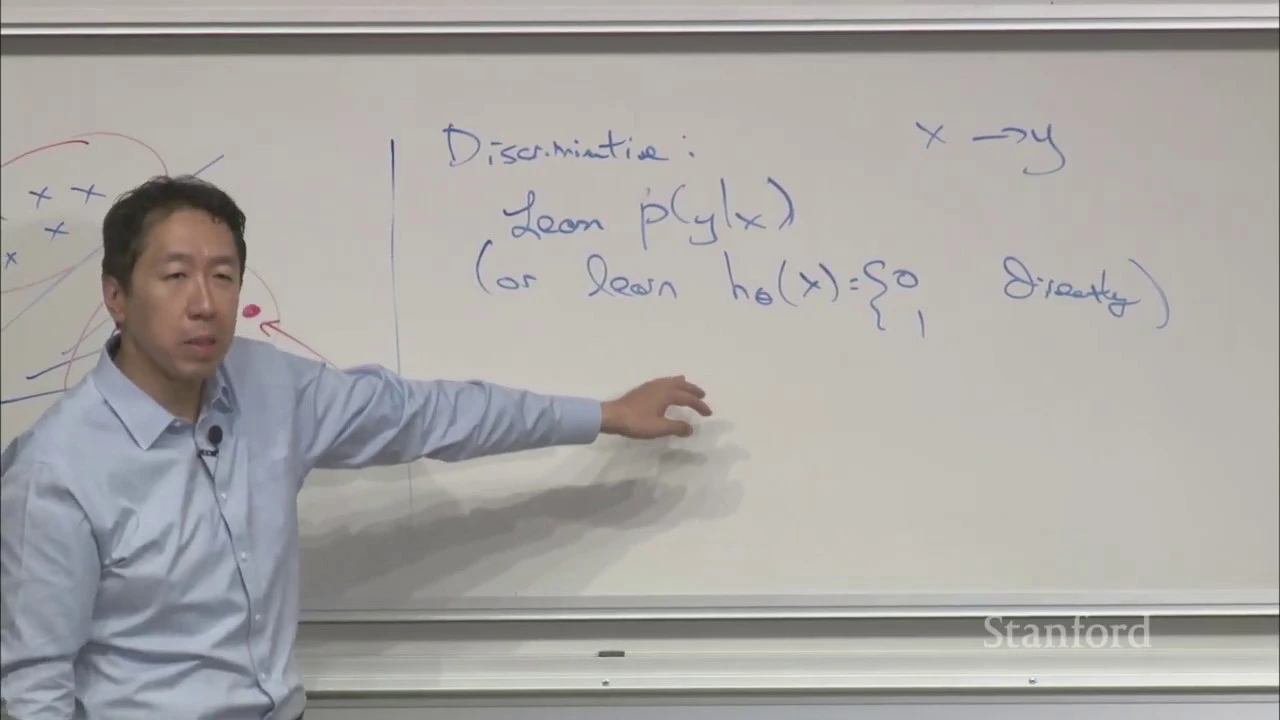 Discriminative: x → y
Learn p(y|x)
(or learn hθ(x) = { 0 1 directly)
Stanford